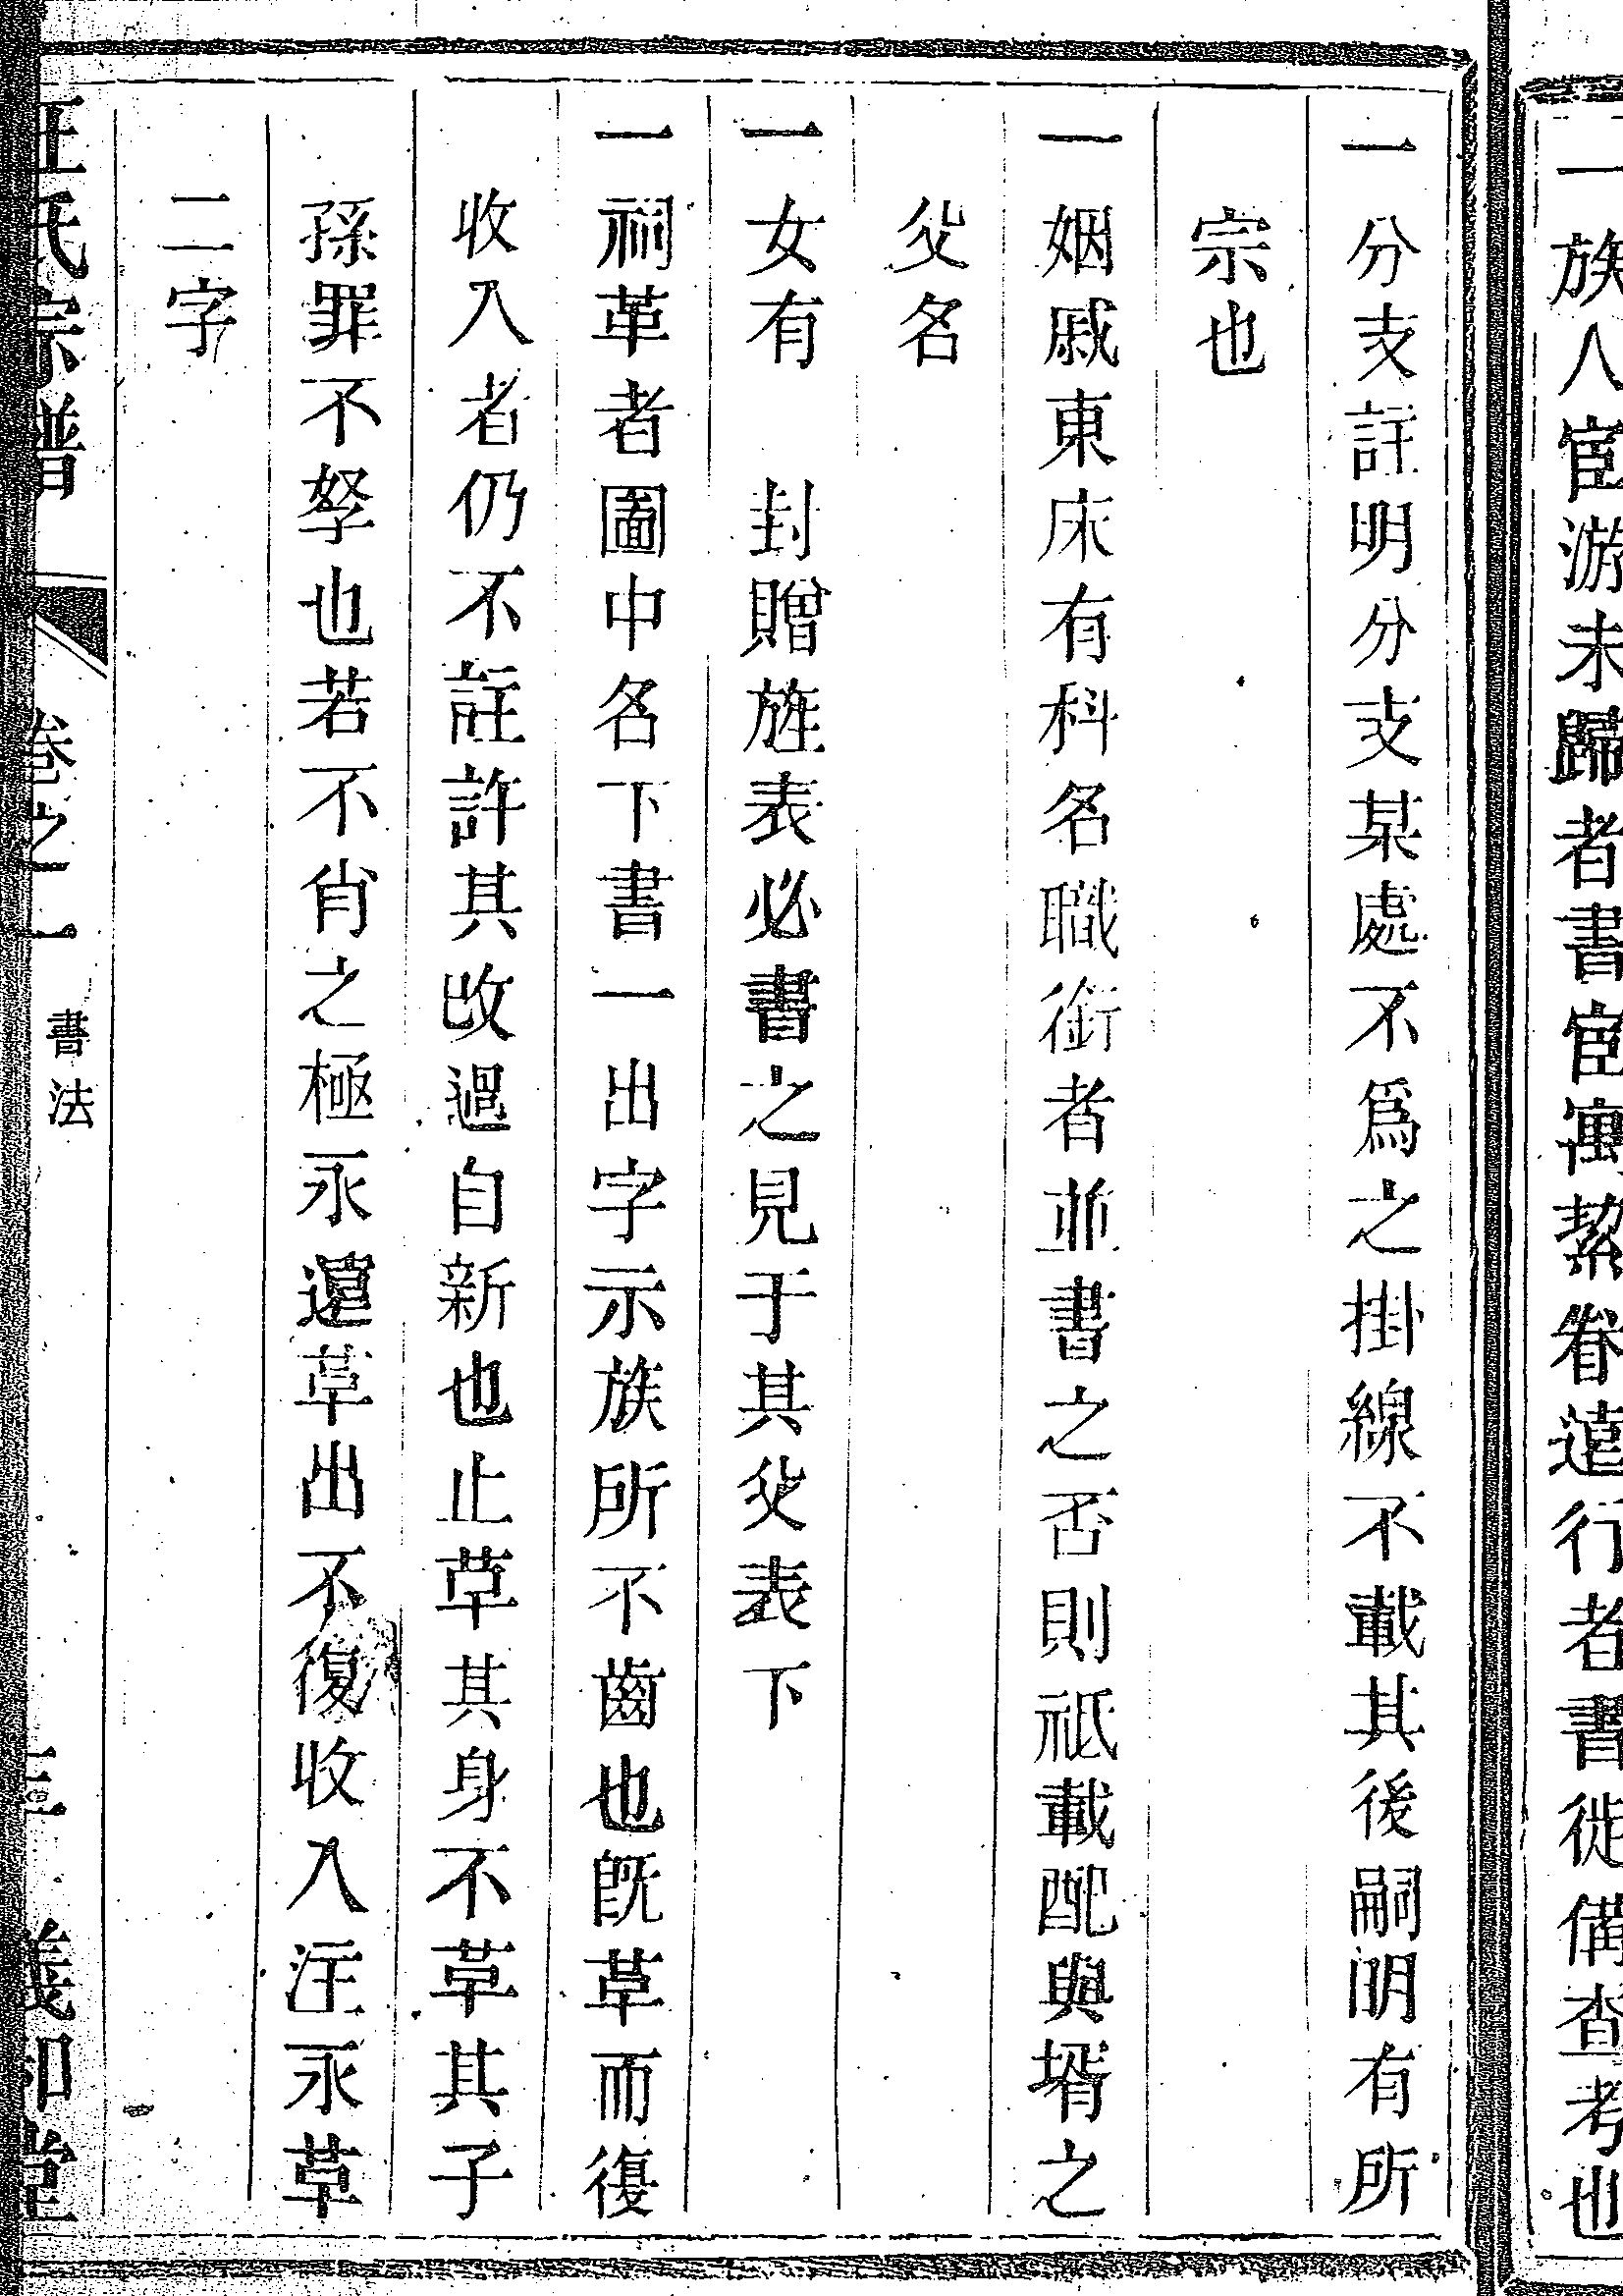 一族人宦游未歸者書宦寓挈眷遠行者書徙備查考也
一分支註明分支某處不爲之掛線不載其後嗣明有所
宗也
一姻戚東床有科名職銜者並書之否則祗載配與壻之
父名
一女有　封贈旌表必書之見于其父表下
一祠革者圖中名下書一出字示族所不齒也既革而復
收入者仍不註許其改過自新也止革其身不革其子
孫罪不孥也若不肖之極永遠革出不復收入注永革
二字
氏宗譜　卷之一　書法　三　義和堂